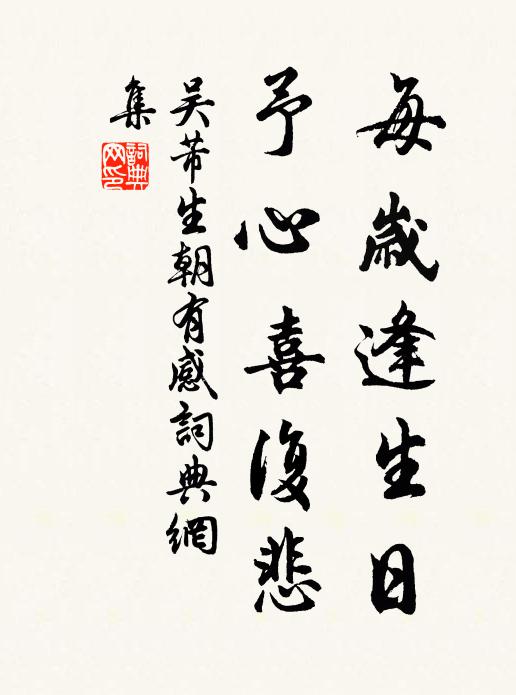 每歲逢生日
予心喜復悲
吳芾生朝有感詞典網
集
詞典
网印